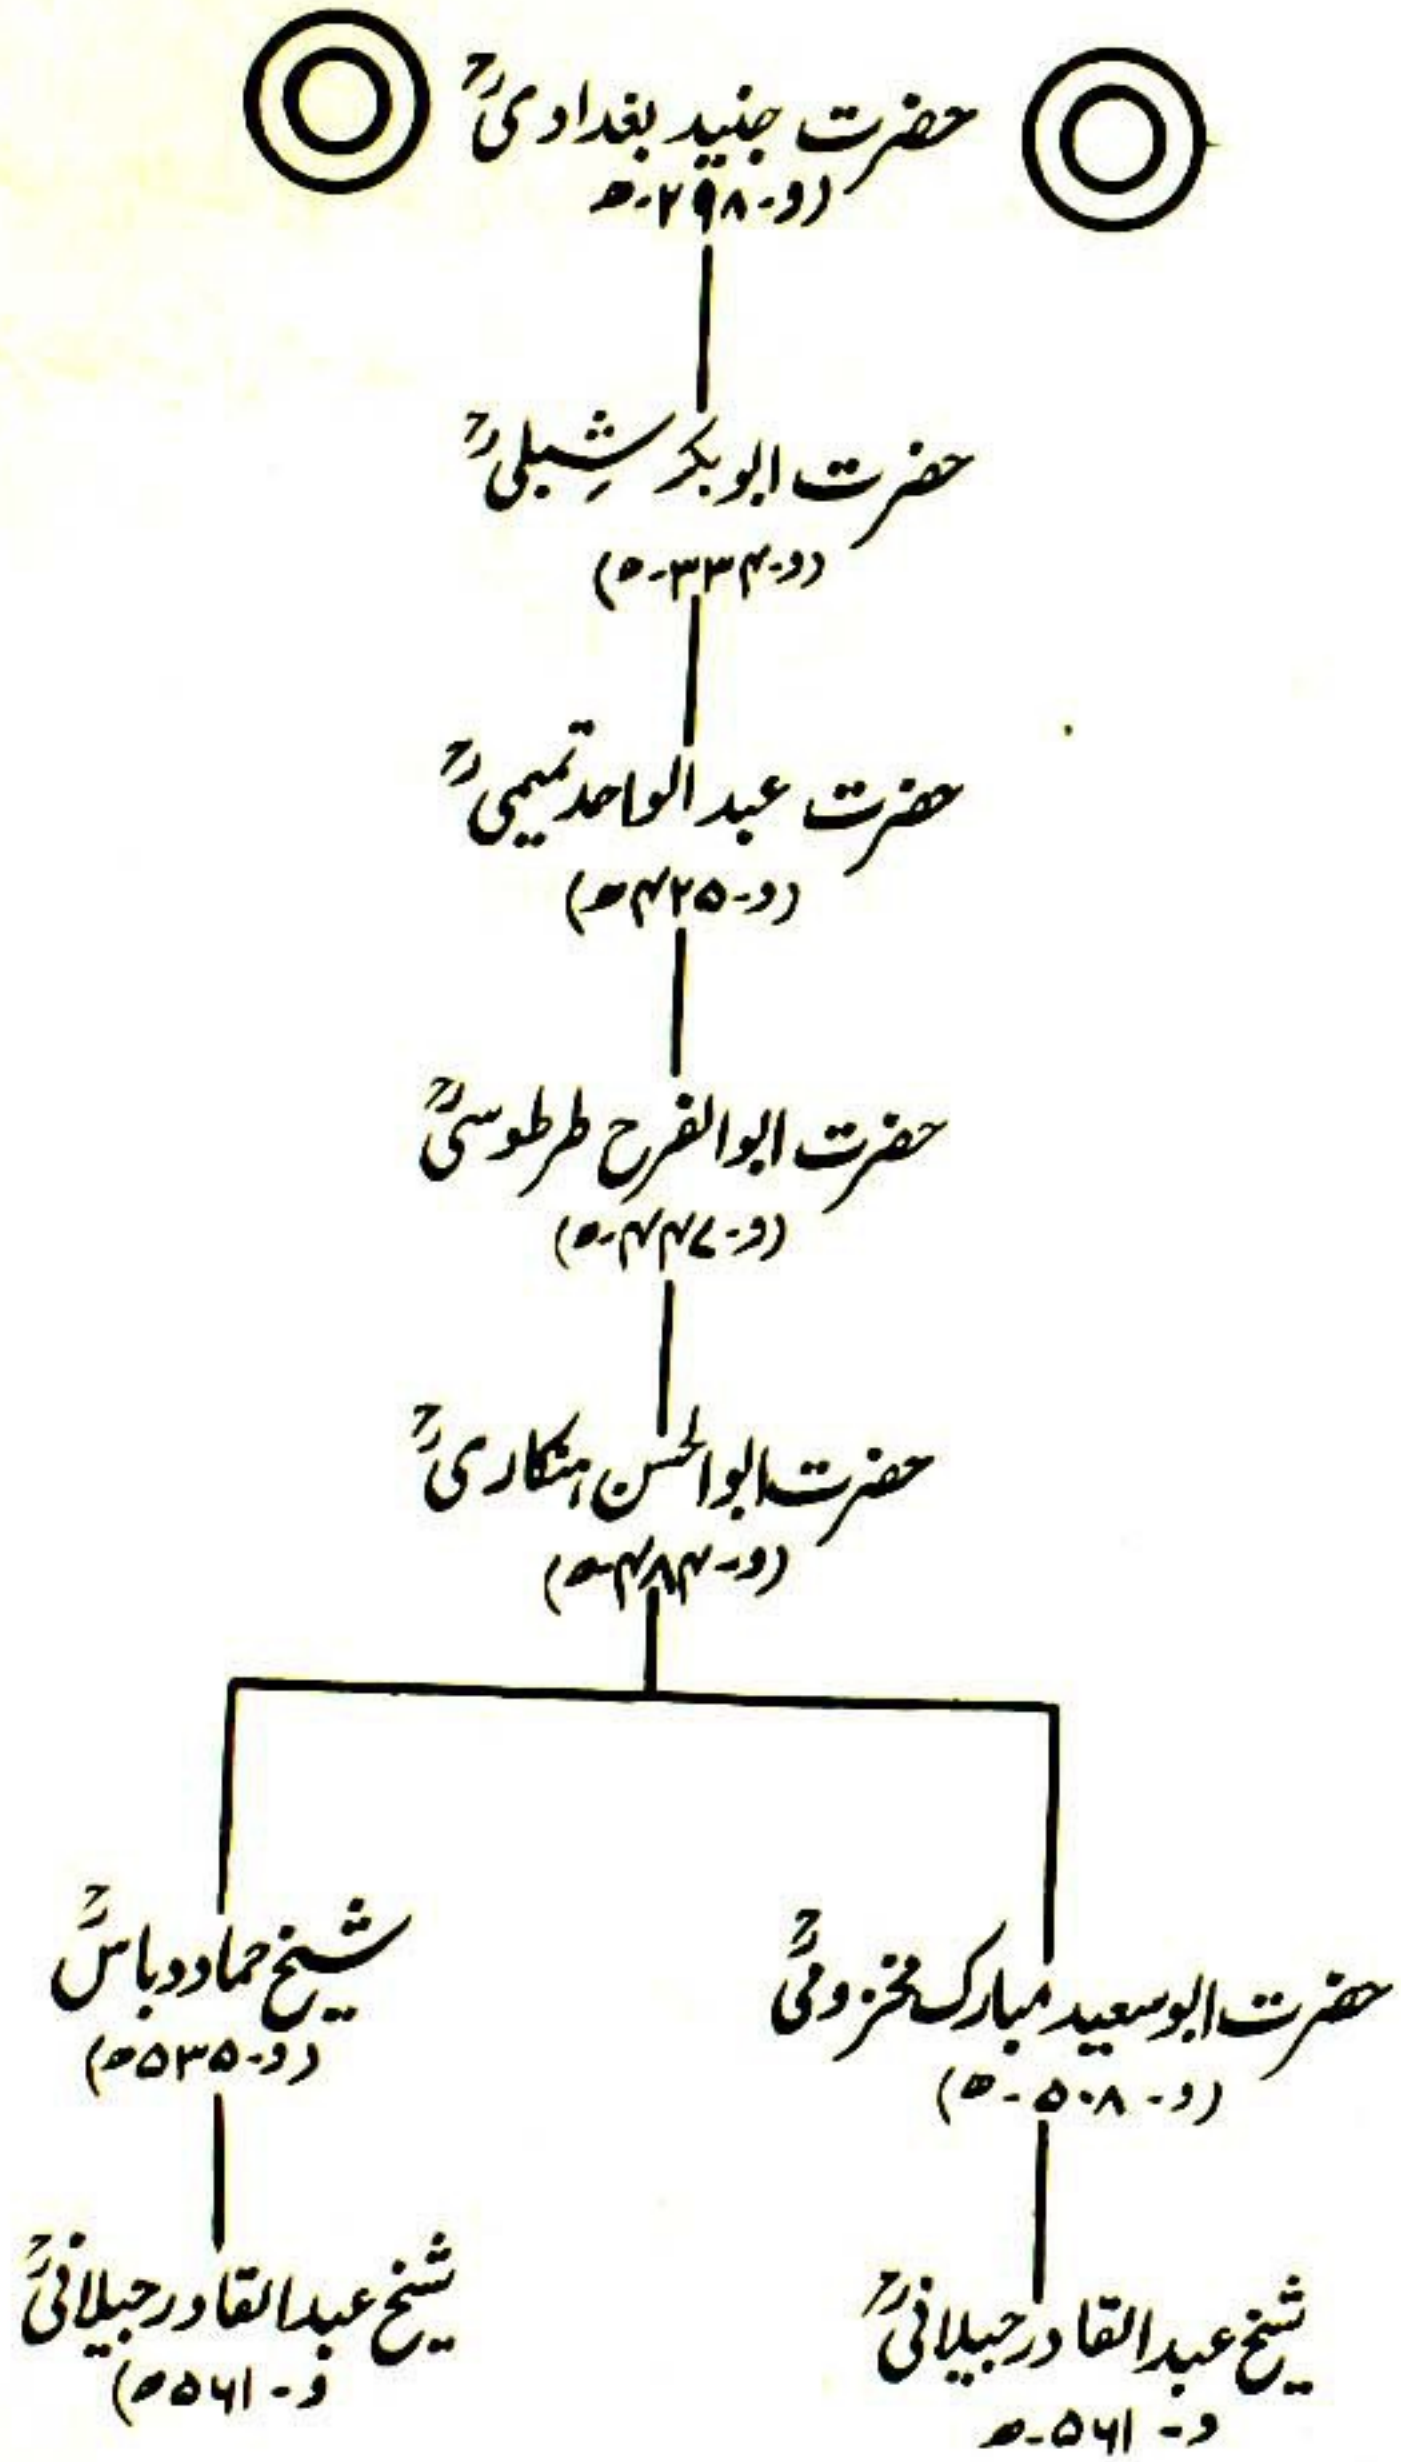 حضرت جنید بغدادیؒ
(و-۲۹۸-ھ
حضرت ابوبکر شِبلیؒ
(و-۳۳۴-ھ)
حضرت عبدالواحد تمیمیؒ
(و-۴۲۵ھ)
حضرت ابوالفرح طرطوسیؒ
(و-۴۴۷-ھ)
حضرت ابوالحسن ہنکاریؒ
(و-۴۸۴-ھ)
حضرت ابوسعید مبارک مخزومیؒ
(و-۵۰۸-ھ)
شیخ حماد دباسؒ
(و-۵۳۵ھ)
شیخ عبدالقادر جیلانیؒ
و-۵۶۱-ھ
شیخ عبدالقادر جیلانیؒ
و-۵۶۱ھ)